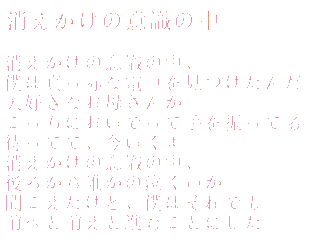 消えかけの意識の中
消えかけの意識の中、
僕は真っ赤な出口を見つけたんだ
大好きなお母さんが
こっちにおいでって手を振ってる
待ってて、今いくよ
消えかけの意識の中、
後ろから誰かの泣く声が
聞こえたけど、僕はそれでも
前へと前へと進むことにした